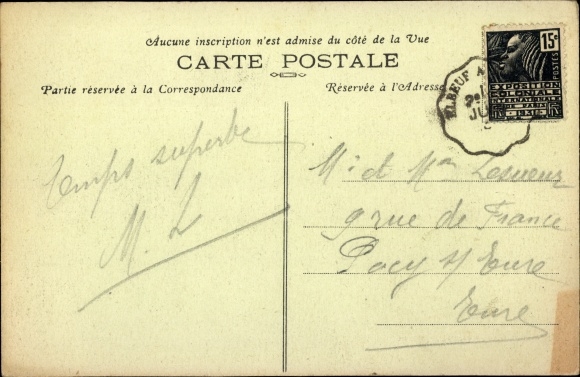 Aucune inscription n'est admise du côté de la Vue
CARTE POSTALE
Partie réservée à la Correspondance
Réservée à l'Adresse
15c
POSTES
EXPOSITION
COLONIALE
INTERNATIONALE
DE PARIS
1931
ELBEUF A
2e
JU
temps superbe
M. L
Mr et Mme Lesueur
9 rue de France
Pacy s/ Eure
Eure